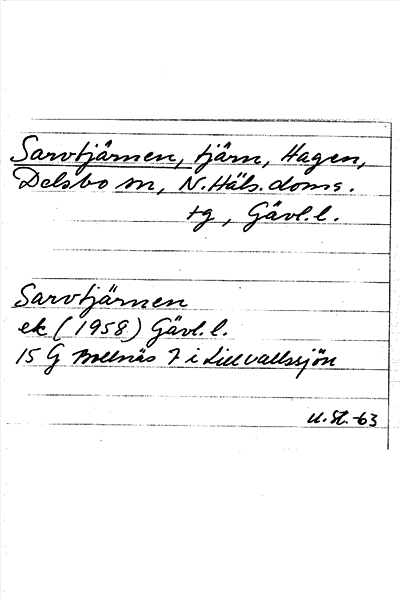 Sarvtjärnen, tjärn, Hagen,
Delsbo sn, N. Häls. doms.
tg, Gävl. l.
Sarvtjärnen
ek (1958) Gävl. l.
15 G Bollnäs 7 i Lillvallssjön
U. St. -63